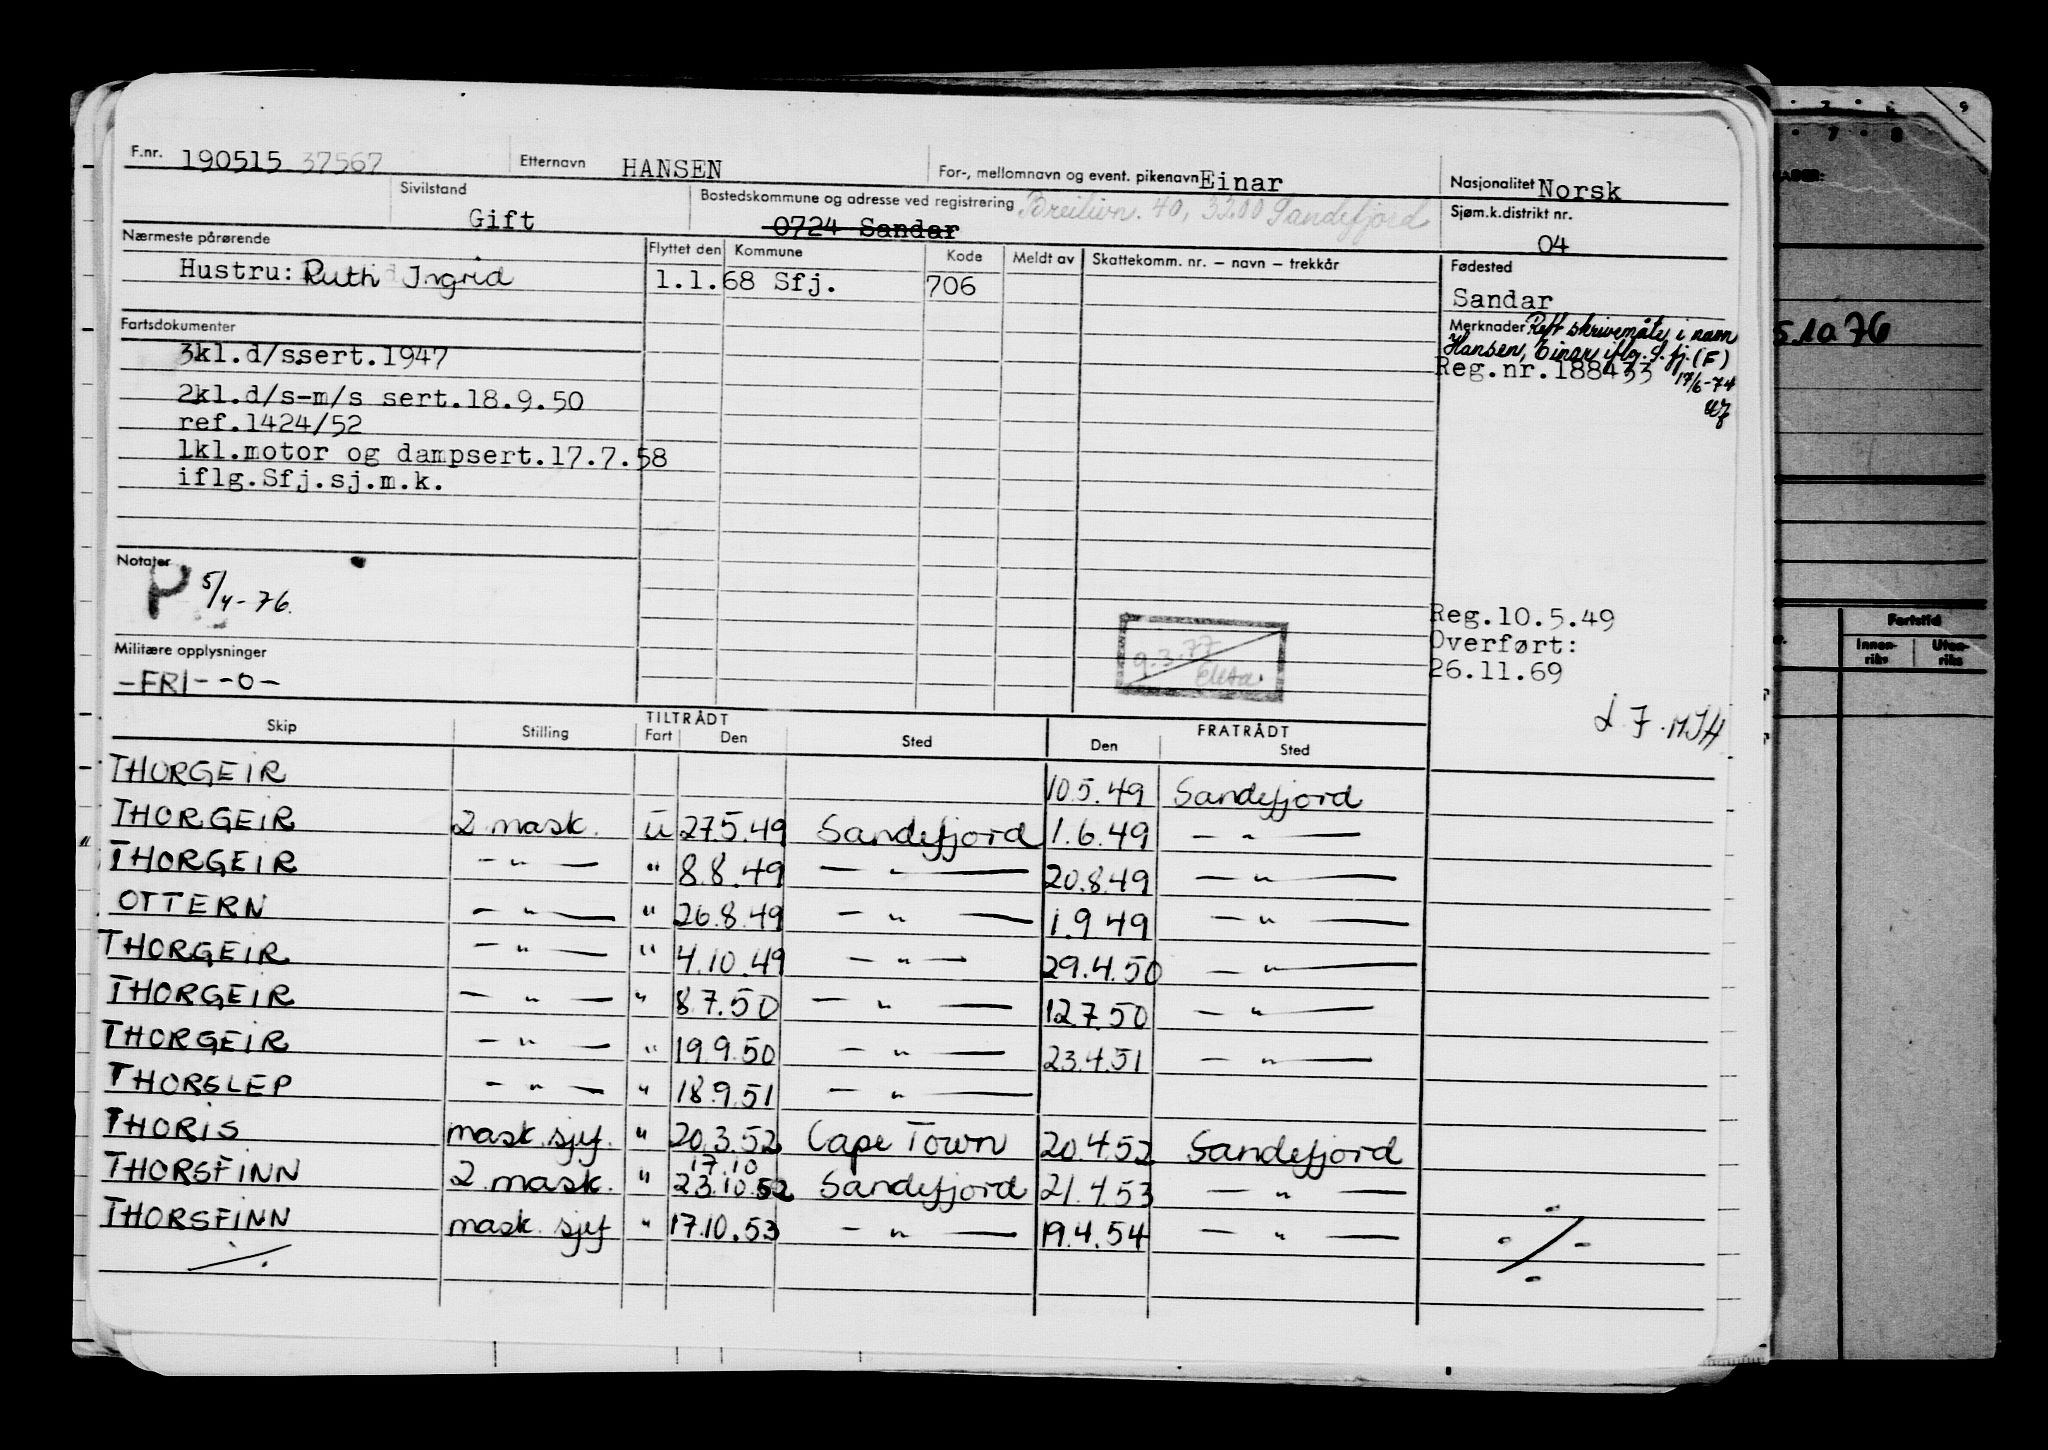 F.nr. 190515 37567 Etternavn HANSEN For-, mellomnavn og event. pikenavn Einar Nasjonalitet Norsk
Sivilstand Gift Bostedskommune og adresse ved registrering 0724 Sandar 40, 3200 Sandefjord Sjøm.k.distrikt nr. 04
Nærmeste pårørende Flyttet den Kommune Kode Meldt av Skattekomm. nr. – navn – trekkår Fødested
Hustru: Ruth Ingrid 1.1.68 Sfj. 706 Sandar
Fartsdokumenter Merknader Rett skrivemåte i navn
Hansen, Einar iflg. S.fj. (F)
3kl.d/ssert.1947 Reg.nr.188433 17/6-74
2kl.d/s-m/s sert.18.9.50
ref.1424/52
1kl.motor og dampsert.17.7.58
iflg.Sfj.sj.m.k.
Notater
P 5/4-76.
Reg.10.5.49
Overført:
26.11.69
9.3.77
Militære opplysninger
-FRI--0-
Skip Stilling TILTRÅDT Fart Den Sted FRATRÅDT Den Sted
THORGEIR 10.5.49 Sandefjord
THORGEIR 2 mask. U 27.5.49 Sandefjord 1.6.49 — " —
THORGEIR — " — " 8.8.49 — " — 20.8.49 — " —
OTTERN — " — " 26.8.49 — " — 1.9 49 — " —
THORGEIR — " — " 4.10.49 — " — 29.4.50 — " —
THORGEIR — " — " 8.7.50 — " — 12.7.50 — " —
THORGEIR — " — " 19.9.50 — " — 23.4.51 — " —
THORSLEP — " — " 18.9.51 — " —
THORIS mask.sjef. " 20.3.52 Cape Town 20.4.52 Sandefjord
17.10
THORSFINN 2 mask. " 23.10.52 Sandefjord 21.4.53 — " —
THORSFINN mask sjef " 17.10.53 — " — 19.4.54 — " —
./.
5.10 76
Fartstid
Innen-riks Uten-riks